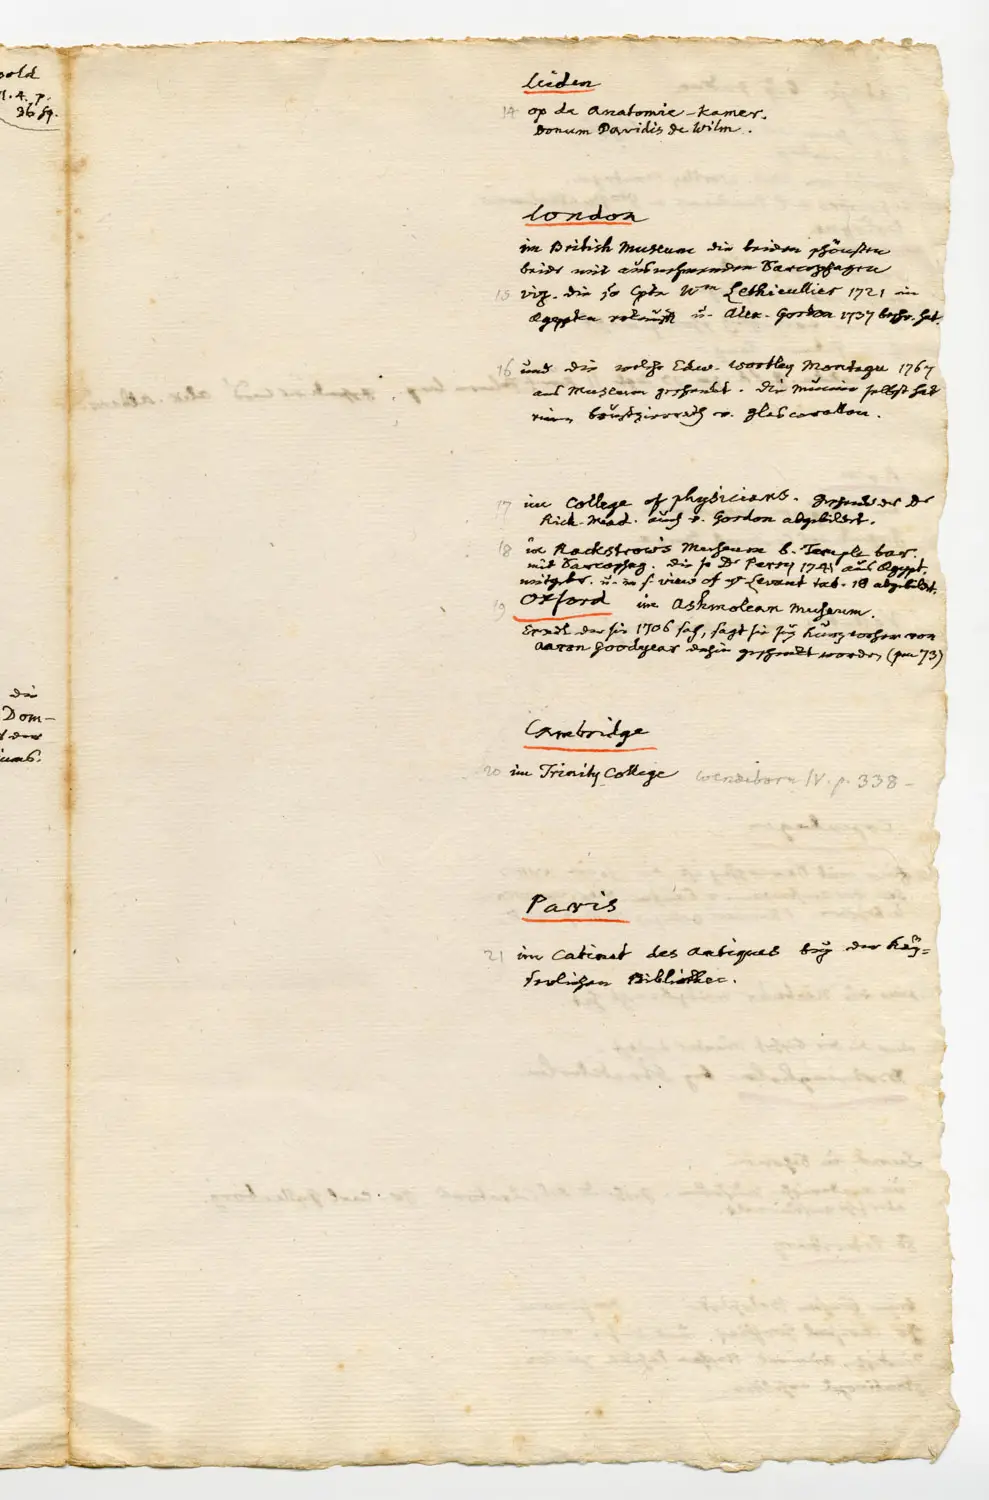 old
4. p.
36 sq.
die
Dom-
der
Leiden
14 op de Anatomie-Kamer.
Donum Davidis de Wilm.
London
im British Museum die beiden schönsten
beide mit ausnehmenden Sarcophagen
15 viz. die so Cptn Wm Lethieullier 1721 in
Aegypten gekauft u. Alex. Gordon 1737 beschr. hat.
16 und die welche Edw. Wortley Montagu 1767
ans Museum geschenkt. die Mumie selbst hat
einen brustzierrath v. glascorallen.
17 im College of physicians. Geschenk des Dr
Rich. Mead. auch v. Gordon abgebildet.
18 in Rackstrow's Museum b. Temple bar.
mit Sarcophag. die so Dr Perry 1741 aus Aegypt.
mitgebr. u. in s. view of ye Levant tab. 18 abgebildet.
Oxford
19 im Ashmolean Museum.
der sie 1706 sah, sagt sie sey kurz vorher von
Aaron Goodyear dahin geschenkt worden (pm 73)
Cambridge
20 im Trinity College Wendeborn IV. p. 338-
Paris
21 im Cabinet des Antiques bey der Köni=
Bibliothec.